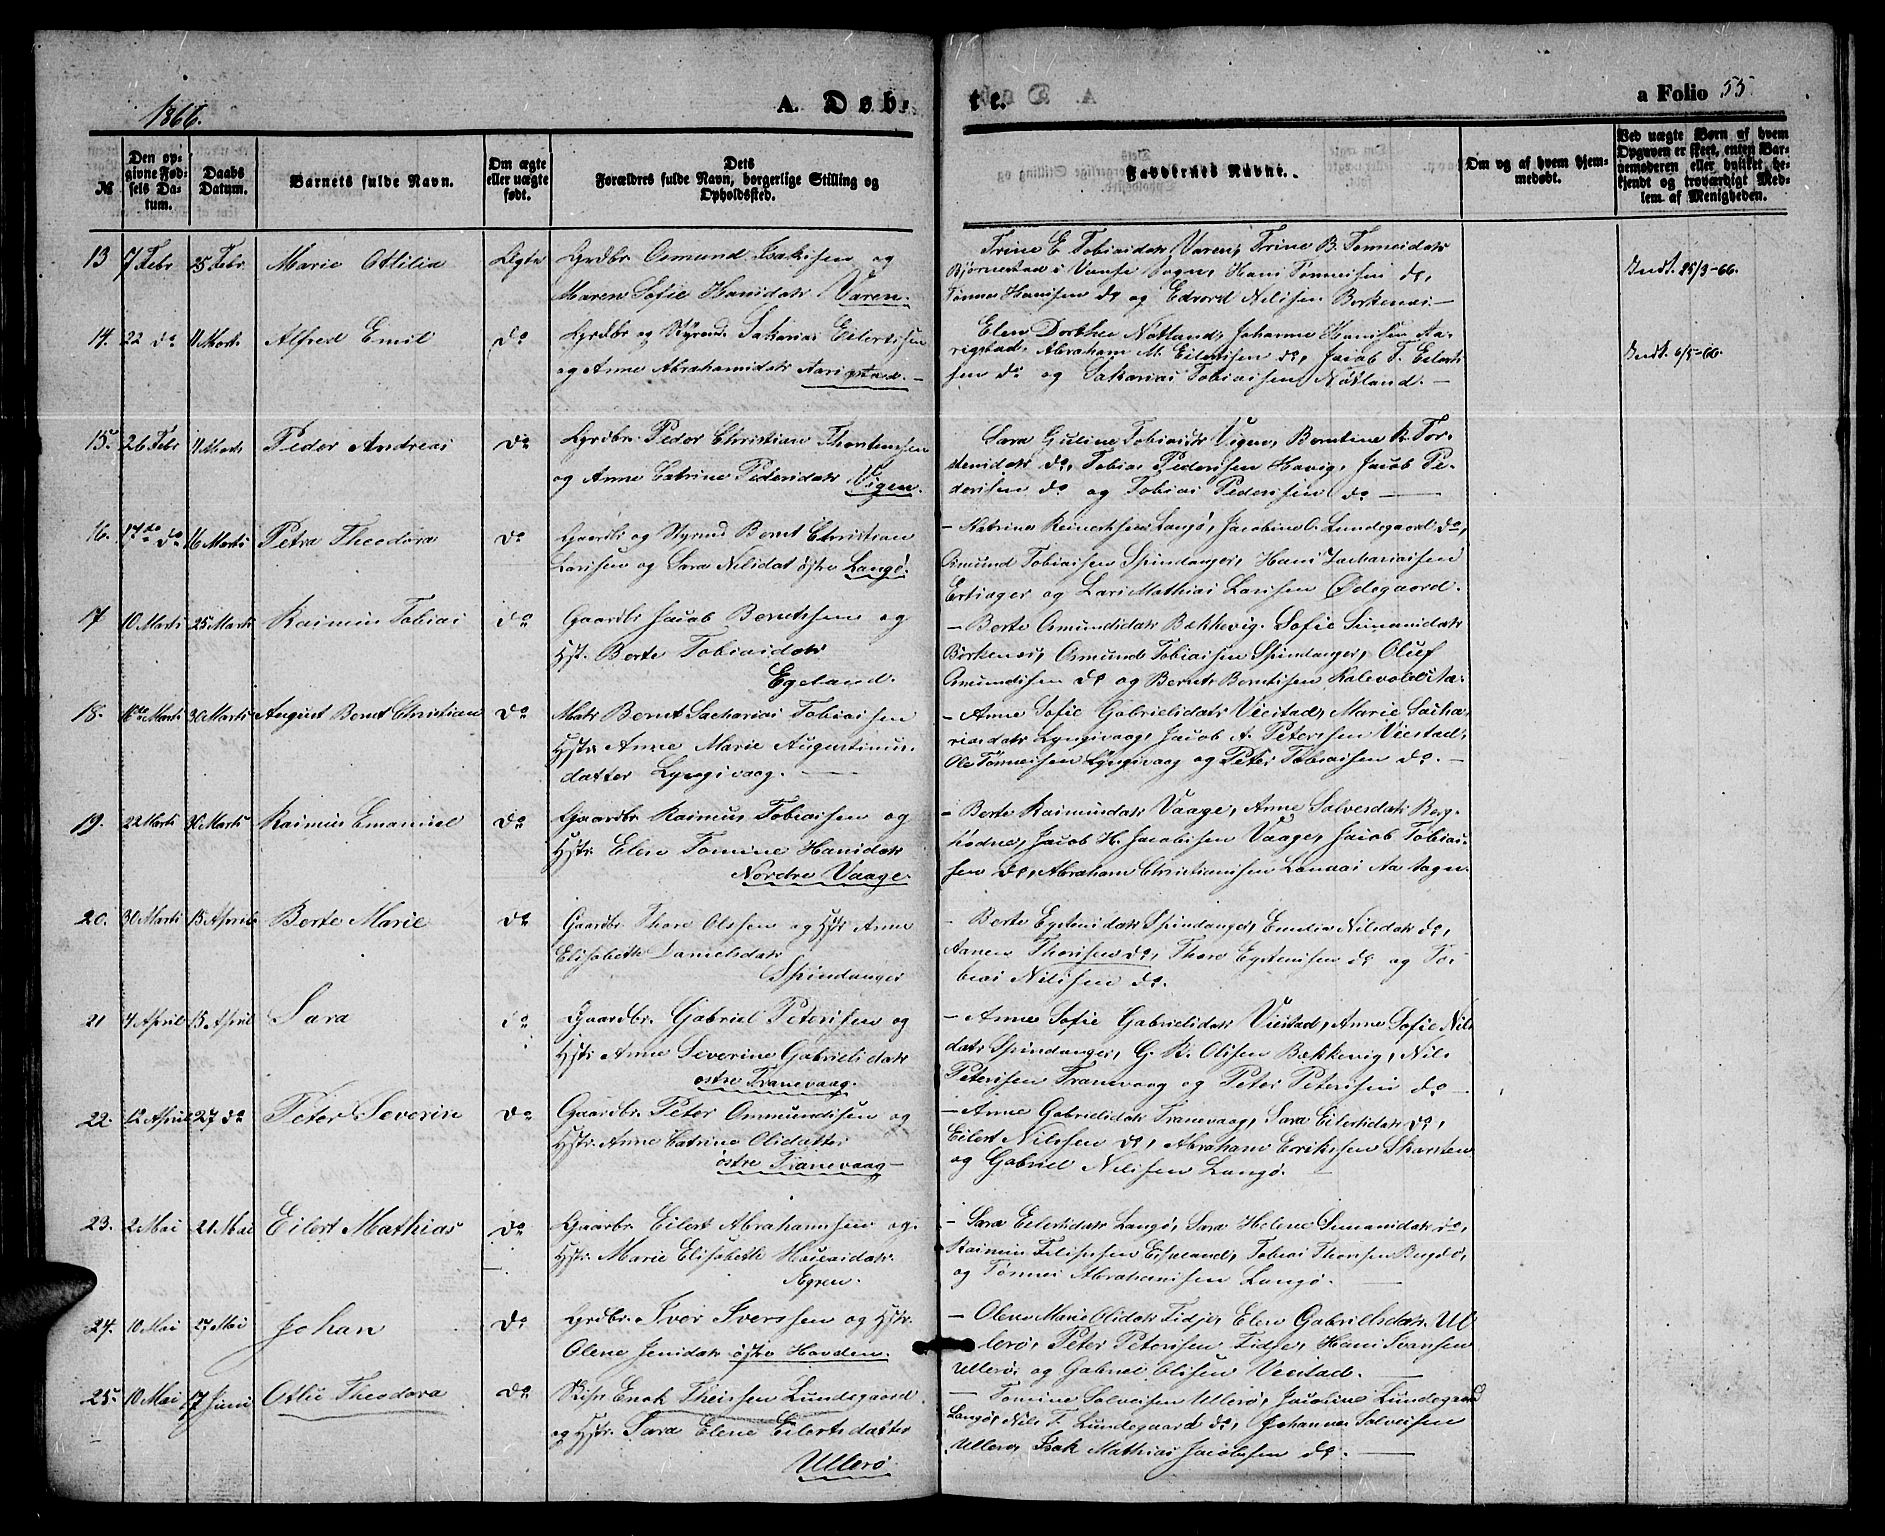 1866.
A. Døb-
te.
a Folio 55.
№
Den op-
givne Fød-
sels Da-
tum.
Daabs
Datum.
Barnets fulde Navn.
Om ægte
eller uægte
født.
Dets
Forældres fulde Navn, borgerlige Stilling og
Opholdssted.
Faddernes Navne.
Om og af hvem hjem-
medøbt.
Ved uægte Børn af hvem
Opgaven er skeet, enten Bar-
nemoderen eller hvilket be-
kjendt og troværdigt Med-
lem af Menigheden.
13 7 Febr 25 Febr Marie Ottilia Ægte Grdbr. Osmund Isaksen og
Maren Sofie Hansdatr Varen.
Trine E Tobiasdatr Varen, Trine B. Tønnesdatr
Bjørnestad i Vanse Sogn, Hans Tønnesen do,
Tønnes Hansen do og Edvord Nilsen Borkenæs
Indt. 25/3-66.
14. 22 do 11 Marts Alfred Emil do Grdbr og Styrmd. Sakarias Eilertssen
og Anne Abrahamsdatr Aarigstad.
Elen Dorthea Nøtland, Johanne Hansen Aa-
rigstad, Abraham M. Eilertsen do, Jacob T. Eilert-
sen do og Sakarias Tobiassen Nøtland.
Indt. 6/5-66.
15. 26 Febr 11 Marts Peder Andreas do Grdbr. Peder Christian Thorstensen
og Anne Catrine Pedersdatr Vigen.
Sara Guline Tobiasdtr Vigen, Berntine K. Tor-
stensdatr do, Tobias Pedersen Havig, Jacob Pe-
dersen do og Tobias Pedersen do
16. 17de do 16 Marts Petra Theodora do Gaardbr og Styrmd Bernt Christian
Larssen og Sara Nilsdat østre Langø.
- Katrine Reinertsen Langø, Jacobine O. Lundegaard do,
Osmund Tobiassen Spindanger, Hans Zachariassen
Ertzager og Lars Mathias Larssen Ødegaard.
17 10 Marts 25 Marts Rasmus Tobias do Gaardb. Jacob Berntssen og
Hst. Berte Tobiasdatr
Egeland.
- Berte Osmundsdatr Bækkevig. Sofie Simensdatr
Borkenæs, Osmund Tobiassen Spindanger, Oluf
Osmundsen do og Bernt Berntsen
18. 16de Marts 30 Marts August Bernt Christian do Matr Bernt Sacharias Tobiassen
Hstr. Anne Marie Augustinus-
datter Lyngsvaag.
- Anne Sofie Gabrielsdatr Viestad, Marie Sacha-
riasdatr Lyngsvaag, Jacob A. Peterssen Viestad,
Ole Tønnessen Lyngsvaag og Peter Tobiassen do.
19. 22 Marts 30 Marts Rasmus Emanuel do Gaardbr. Rasmus Tobiassen og
Hstr. Elen Tomine Hansdatr
Nordre Vaage.
- Berte Rasmusdatr Vaage, Anne Salvesdatr Berg-
hødne, Jacob H. Jacobsen Vaage, Jacob Tobias-
sen do, Abraham Christiansen Lanaas Aa Sogn.
20. 30 Marts 15 April Berte Marie do Gaardbr. Thore Olssen og Hstr Anne
Elisabeth Danielsdatr
Spindanger
- Berte Egstensdatr Spindanger, Emilie Nilsdatr do,
Aanen Thorsen do, Thore Egstensen do og To-
bias Nilsen do.
21 4 April 15 April Sara do Gaardbr. Gabriel Peterssen og
Hstr Anne Severine Gabrielsdatr
østre Tranevaag.
- Anne Sofie Gabrielsdatr Viestad, Anne Sofie Nils-
datr Spindanger, G. K. Olssen Bækkevig, Nils
Peterssen Tranevaag og Peter Peterssen do
22. 12 April 27 do Peter Severin do Gaardbr. Peter Osmundssen og
Hstr. Anne Catrine Olsdatter
østre Tranevaag
- Anne Gabrielsdatr Tranevaag, Sara Eilertsdatr do,
Eilert Nilssen do, Abraham Erikssen Skarsten
og Gabriel Nilssen Langø.
23. 2 Mai 21 Mai Eilert Mathias do Gaardbr. Eilert Abrahamsen og
Hstr. Marie Elisabeth
Agren.
- Sara Eilertsdatr Langø, Sara Helene Simensdatr do,
Rasmus Filipsen Eikeland, Tobias Thorsen Bugdø,
og Tønnes Abrahamsen Langø.
24. 10 Mai 27 Mai Johan do Grdbr. Iver Iverssen og Hstr.
Olene Jensdatr østre Hovden.
- Olene Marie Olsdatr Fidje, Elen Gabrielsdatr Ul-
lerø, Peter Peterssen Fidje, Hans Svensen
Ullerø, og Gabriel Olssen Viestad.
25. 10 Mai 17 Juni Otlie Theodora do Enok Theissen Lundegaard
og Hstr. Sara Elene Eilertsdatter
Ullerø
- Tomine Salvesen Ullerø, Jacobine Lundegaard
Langø, Nils T. Lundegaard do, Johannes Salvesen
Ullerø, Isak Mathias Jacobsen do.